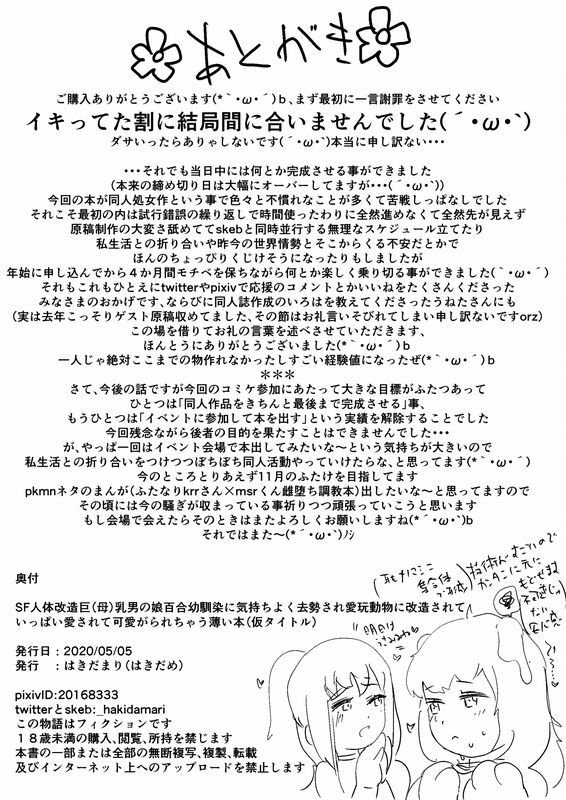 あとがき
ご購入ありがとうございます(*｀･ω･´)ｂ、まず最初に一言謝罪をさせてください
イキってた割に結局間に合いませんでした(´･ω･`)
ダサいったらありゃしないです(´･ω･`)本当に申し訳ない･･･
･･･それでも当日中には何とか完成させる事ができました
(本来の締め切り日は大幅にオーバーしてますが･･･(´･ω･`))
今回の本が同人処女作という事で色々と不慣れなことが多くて苦戦しっぱなしでした
それこそ最初の内は試行錯誤の繰り返しで時間使ったわりに全然進めなくて全然先が見えず
原稿制作の大変さ舐めててskebと同時並行する無理なスケジュール立てたり
私生活との折り合いや昨今の世界情勢とそこからくる不安だとかで
ほんのちょっぴりくじけそうになったりもしましたが
年始に申し込んでから４か月間モチベを保ちながら何とか楽しく乗り切る事ができました(｀･ω･´)
それもこれもひとえにtwitterやpixivで応援のコメントとかいいねをたくさんくださった
みなさまのおかげです、ならびに同人誌作成のいろはを教えてくださったうねたさんにも
(実は去年こっそりゲスト原稿収めてました、その節はお礼言いそびれてしまい申し訳ないですorz)
この場を借りてお礼の言葉を述べさせていただきます、
ほんとうにありがとうございました(*｀･ω･´)ｂ
一人じゃ絶対ここまでの物作れなかったしすごい経験値になったぜ(*｀･ω･´)ｂ
＊＊＊
さて、今後の話ですが今回のコミケ参加にあたって大きな目標がふたつあって
ひとつは｢同人作品をきちんと最後まで完成させる｣事、
もうひとつは｢イベントに参加して本を出す｣という実績を解除することでした
今回残念ながら後者の目的を果たすことはできませんでした･･･
が、やっぱ一回はイベント会場で本出してみたいな～という気持ちが大きいので
私生活との折り合いをつけつつぼちぼち同人活動やっていけたらな、と思ってます(*｀･ω･´)
今のところとりあえず11月のふたけを目指してます
pkmnネタのまんが(ふたなりkrrさん×msrくん雌堕ち調教本)出したいな～と思ってますので
その頃には今の騒ぎが収まっている事祈りつつ頑張っていこうと思います
もし会場で会えたらそのときはまたよろしくお願いしますね(*´･ω･`)b
それではまた～(*´･ω･`)ﾉｼ
奥付
SF人体改造巨(母)乳男の娘百合幼馴染に気持ちよく去勢され愛玩動物に改造されて
いっぱい愛されて可愛がられちゃう薄い本(仮タイトル)
発行日：2020/05/05
発行　：はきだまり(はきだめ)
pixivID:20168333
twitterとskeb:_hakidamari
この物語はフィクションです
１８歳未満の購入、閲覧、所持を禁じます
本書の一部または全部の無断複写、複製、転載
及びインターネット上へのアップロードを禁止します